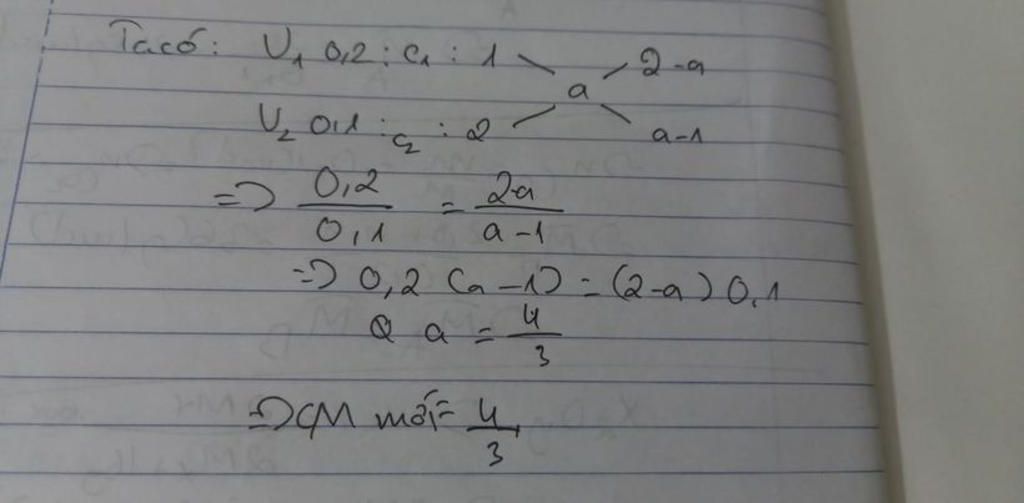 Ta có: V₁ 0,2 : C₁ : 1 2-a
a
V₂ 0,1 : C₂ : 2 a-1
=> 0,2/0,1 = 2-a/a-1
=> 0,2 (a-1) = (2-a) 0,1
a = 4/3
=> CM mới = 4/3